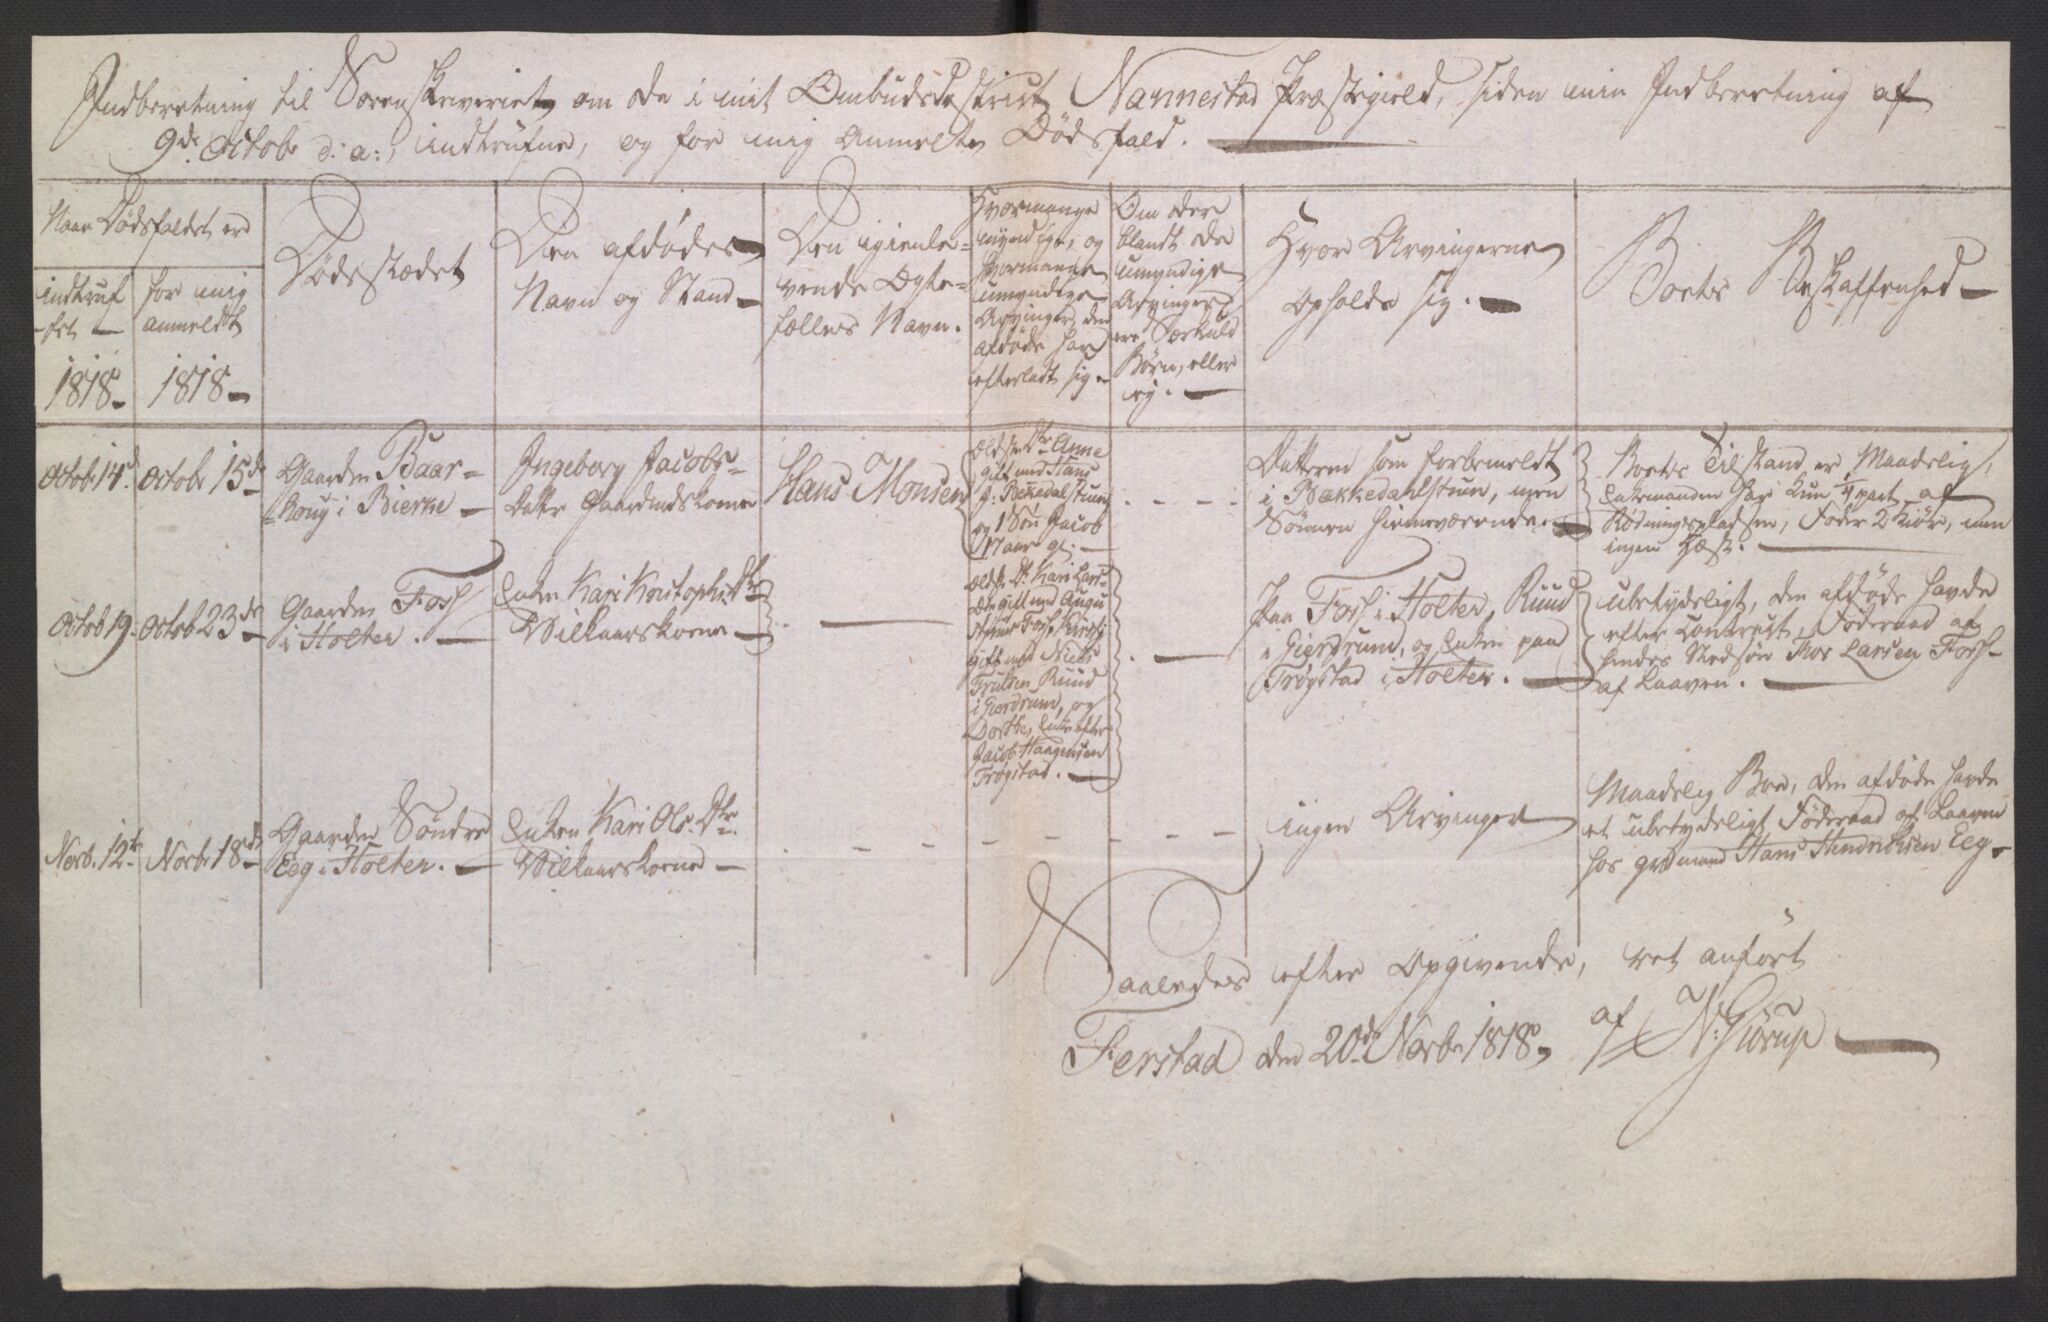 Indberetning til Sorenskriveriet om de i mit Ombudsdistrict Nannestad Præstegield, siden min Indberetning af
9de Octobr d: a:, indtrufne, og for mig anmeldte Dødsfald.
Naar Dødsfaldet er
indtruf-
fet
1818
for mig
anmeldt
1818
Dødsstædet
Den afdødes
Navn og Stand
Den igienle-
vende Ægte-
fælles Navn.
Hvormange
myndige, og
hvormange
umyndige
Arvinger, den
afdøde har
efterladt sig.
Om der
blandt de
umyndige
Arvinger
ere Særkuld
Børn, eller
ey.
Hvor Arvingerne
opholde sig.
Boets Beskaffenhed
Octob. 14d
Octobr 15de
Gaarden Baar-
i Bierke
Ingeborg Jacobs-
Datter Gaardmandskone
Hans Monsen
ældste Dtr Anne
gift med Hans
J. Bekkedalstuen
og 1 Søn Jacob
17 aar gl.
Datteren som forbemeldt
i Bækkedahlstuen, men
Sønnen hiemmeværende.
Boets Tilstand er Maadelig,
Enkemanden har kun 1/4 part af
Rødningspladsen, føder 2 Kiør, men
ingen Hæst.
Octob 19.
Octob 23de
Gaarden Foss
i Holter.
Enken Kari Kristophs Dtr
Vilkaarskone
ældste Dtr Kari Lars-
Dtr gift med
Foss,
gift med Niels
Trulsen Ruud
i Gierdrum, og
Dorthe, Enke efter
Jacob Haagensen
Trøgstad.
Paa Foss i Holter, Ruud
i Gierdrum, og Enken paa
Trøgstad i Holter.
Ubetydeligt, den afdøde havde
efter Contract, Føderaad af
hendes Stedsøn Thor Larsen Foss
af Laaven.
Novb. 12te
Novbr 18de
Gaarden Søndre
Eeg i Holter.
Enken Kari Ols Dtr.
Vilkaarskone
ingen Arvinger
Maadelig Boe, den afdøde havde
et ubetydeligt Føderaad af Laaven
hos Grdmand Hans Hendrichsen Eeg
Saaledes efter Opgivende, ret anført
Ferstad den 20de Novbr 1818, af N: Giørup